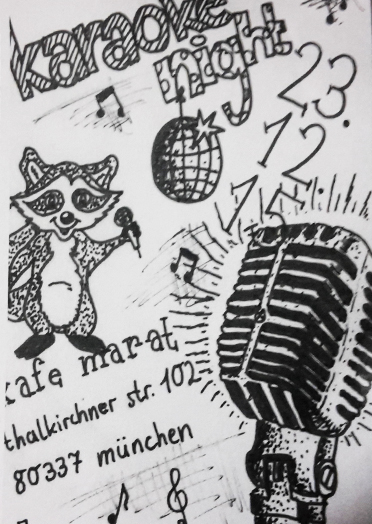 karaoke
night
23.
12.
15.
kafe marat
thalkirchner str. 102
80337 münchen